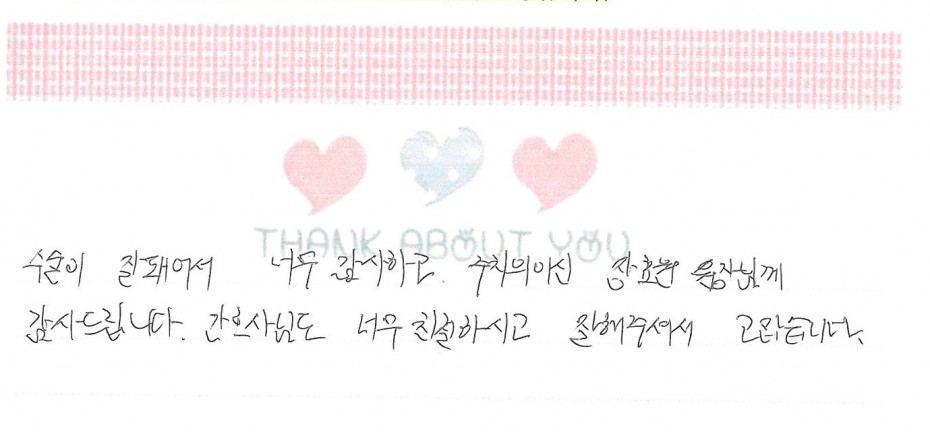 THANK ABOUT YOU
수술이 잘돼어서 너무 감사하고. 주치의이신 장효윤 원장님께
감사드립니다. 간호사님도 너무 친절하시고 잘해주셔서 고맙습니다.